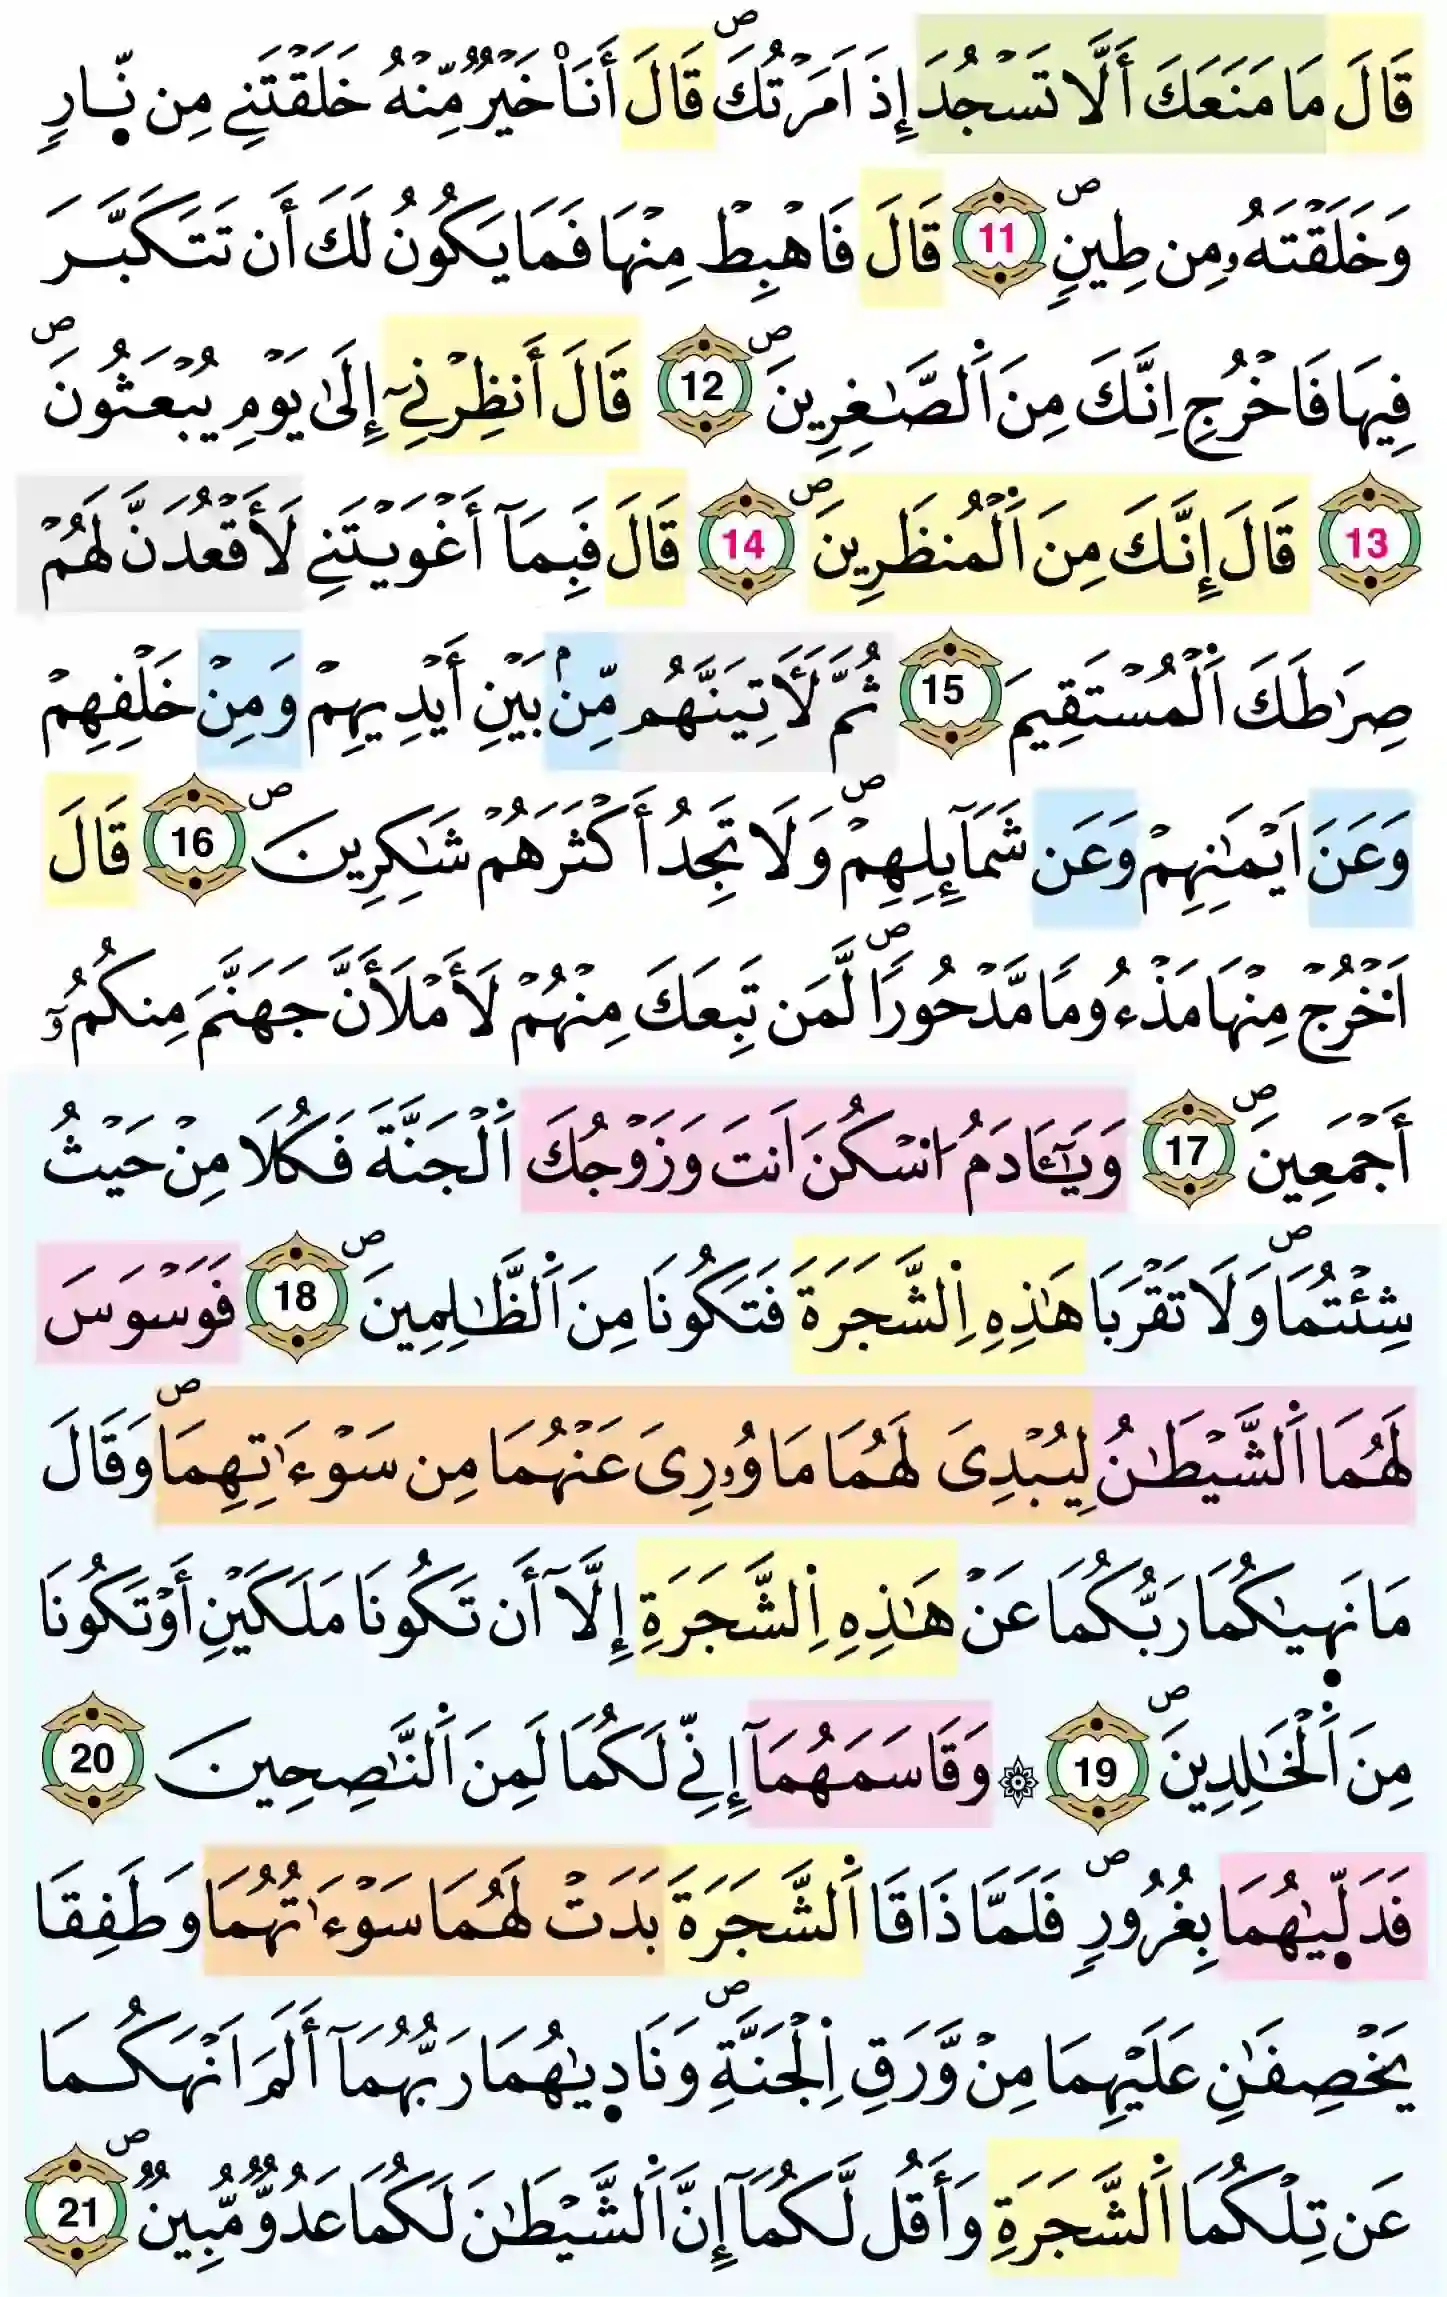 قَالَ مَا مَنَعَكَ أَلَّا تَسْجُدَ إِذَ اَمَرْتُكَ ۖ قَالَ أَنَا۠ خَيْرٌ مِّنْهُ خَلَقْتَنِے مِن نّ۪ارٖ
وَخَلَقْتَهُۥ مِن طِينٖ ۖ 11 قَالَ فَاهْبِطْ مِنْهَا فَمَا يَكُونُ لَكَ أَن تَتَكَبَّرَ
فِيهَا فَاخْرُجِ اِنَّكَ مِنَ اَ۬لصَّٰغِرِينَ ۖ 12 قَالَ أَنظِرْنِےٓ إِلَىٰ يَوْمِ يُبْعَثُونَ ۖ
13 قَالَ إِنَّكَ مِنَ اَ۬لْمُنظَرِينَ ۖ 14 قَالَ فَبِمَآ أَغْوَيْتَنِے لَأَقْعُدَنَّ لَهُمْ
صِرَٰطَكَ اَ۬لْمُسْتَقِيمَ 15 ثُمَّ لَأٓتِيَنَّهُم مِّنۢ بَيْنِ أَيْدِيهِمْ وَمِنْ خَلْفِهِمْ
وَعَنَ اَيْمَٰنِهِمْ وَعَن شَمَآئِلِهِمْ ۖ وَلَا تَجِدُ أَكْثَرَهُمْ شَٰكِرِينَ ۖ 16 قَالَ
اَ۟خْرُجْ مِنْهَا مَذْءُوماٗ مَّدْحُوراٗ ۖ لَّمَن تَبِعَكَ مِنْهُمْ لَأَمْلَأَنَّ جَهَنَّمَ مِنكُمُۥٓ
أَجْمَعِينَ ۖ 17 وَيَٰٓـَٔادَمُ اُ۟سْكُنَ اَنتَ وَزَوْجُكَ اَ۬لْجَنَّةَ فَكُلَا مِنْ حَيْثُ
شِئْتُمَا ۖ وَلَا تَقْرَبَا هَٰذِهِ اِ۬لشَّجَرَةَ فَتَكُونَا مِنَ اَ۬لظَّٰلِمِينَ ۖ 18 فَوَسْوَسَ
لَهُمَا اَ۬لشَّيْطَٰنُ لِيُبْدِيَ لَهُمَا مَا وُۥرِيَ عَنْهُمَا مِن سَوْءَٰتِهِمَا ۖ وَقَالَ
مَا نَه۪يٰكُمَا رَبُّكُمَا عَنْ هَٰذِهِ اِ۬لشَّجَرَةِ إِلَّآ أَن تَكُونَا مَلَكَيْنِ أَوْ تَكُونَا
مِنَ اَ۬لْخَٰلِدِينَ ۖ 19 ۞ وَقَاسَمَهُمَآ إِنِّے لَكُمَا لَمِنَ اَ۬لنَّٰصِحِينَ 20
فَدَلّ۪يٰهُمَا بِغُرُورٖ ۖ فَلَمَّا ذَاقَا اَ۬لشَّجَرَةَ بَدَتْ لَهُمَا سَوْءَٰتُهُمَا وَطَفِقَا
يَخْصِفَٰنِ عَلَيْهِمَا مِنْ وَّرَقِ اِ۬لْجَنَّةِ ۖ وَنَاد۪يٰهُمَا رَبُّهُمَآ أَلَمَ اَنْهَكُمَا
عَن تِلْكُمَا اَ۬لشَّجَرَةِ وَأَقُل لَّكُمَآ إِنَّ اَ۬لشَّيْطَٰنَ لَكُمَا عَدُوّٞ مُّبِينٞ ۖ 21